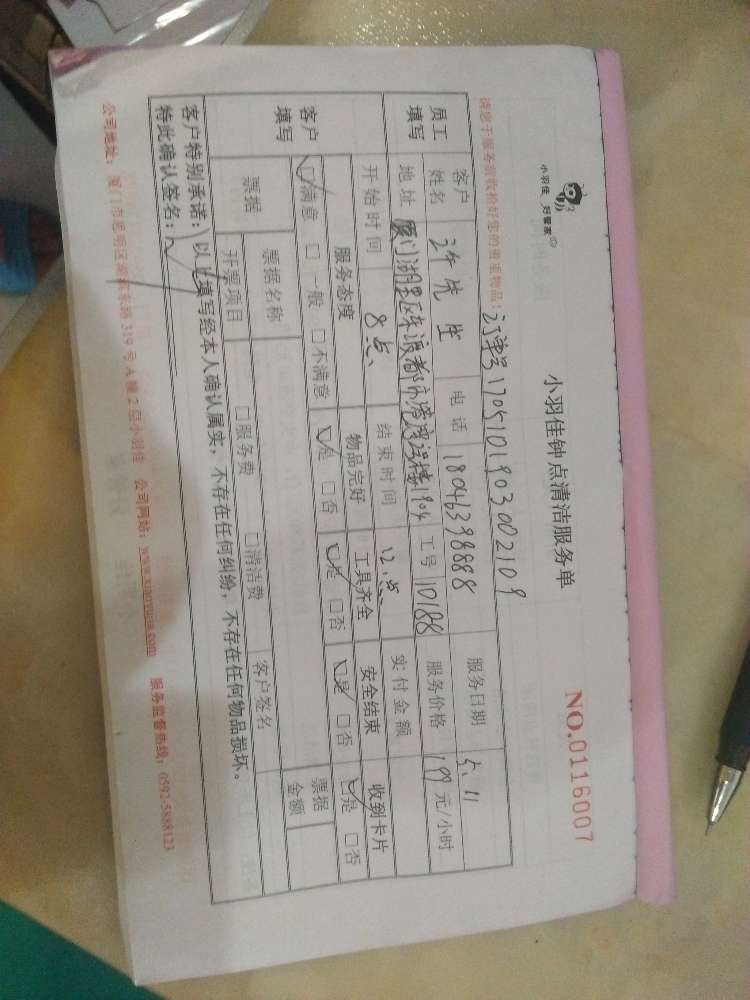 小羽佳 好管家
小羽佳钟点清洁服务单
NO.0116007
请您于服务前收检好您的贵重物品！
订单号170510190300 2109
员工填写
客户姓名 先生 电话 18046398888 服务日期 5.11
地址 厦门湖里区东渡都市港湾 1904 工号 10188 服务价格 199 元/小时
开始时间 8点 结束时间 12点 实付金额
客户填写
服务态度 物品完好 工具齐全 安全结束 收到卡片
☑满意 □一般 □不满意 ☑是 □否 ☑是 □否 ☑是 □否 ☑是 □否
票据 票据名称 客户签名 票据金额
开票项目 □服务费 □清洁费
客户特别承诺：以上填写经本人确认属实，不存在任何纠纷，不存在任何物品损坏。
特此确认签名：
公司地址：厦门市思明区 东路319号A幢2层小羽佳 公司网站：www.xiaoyujia.com 服务监督热线：0592-5888123